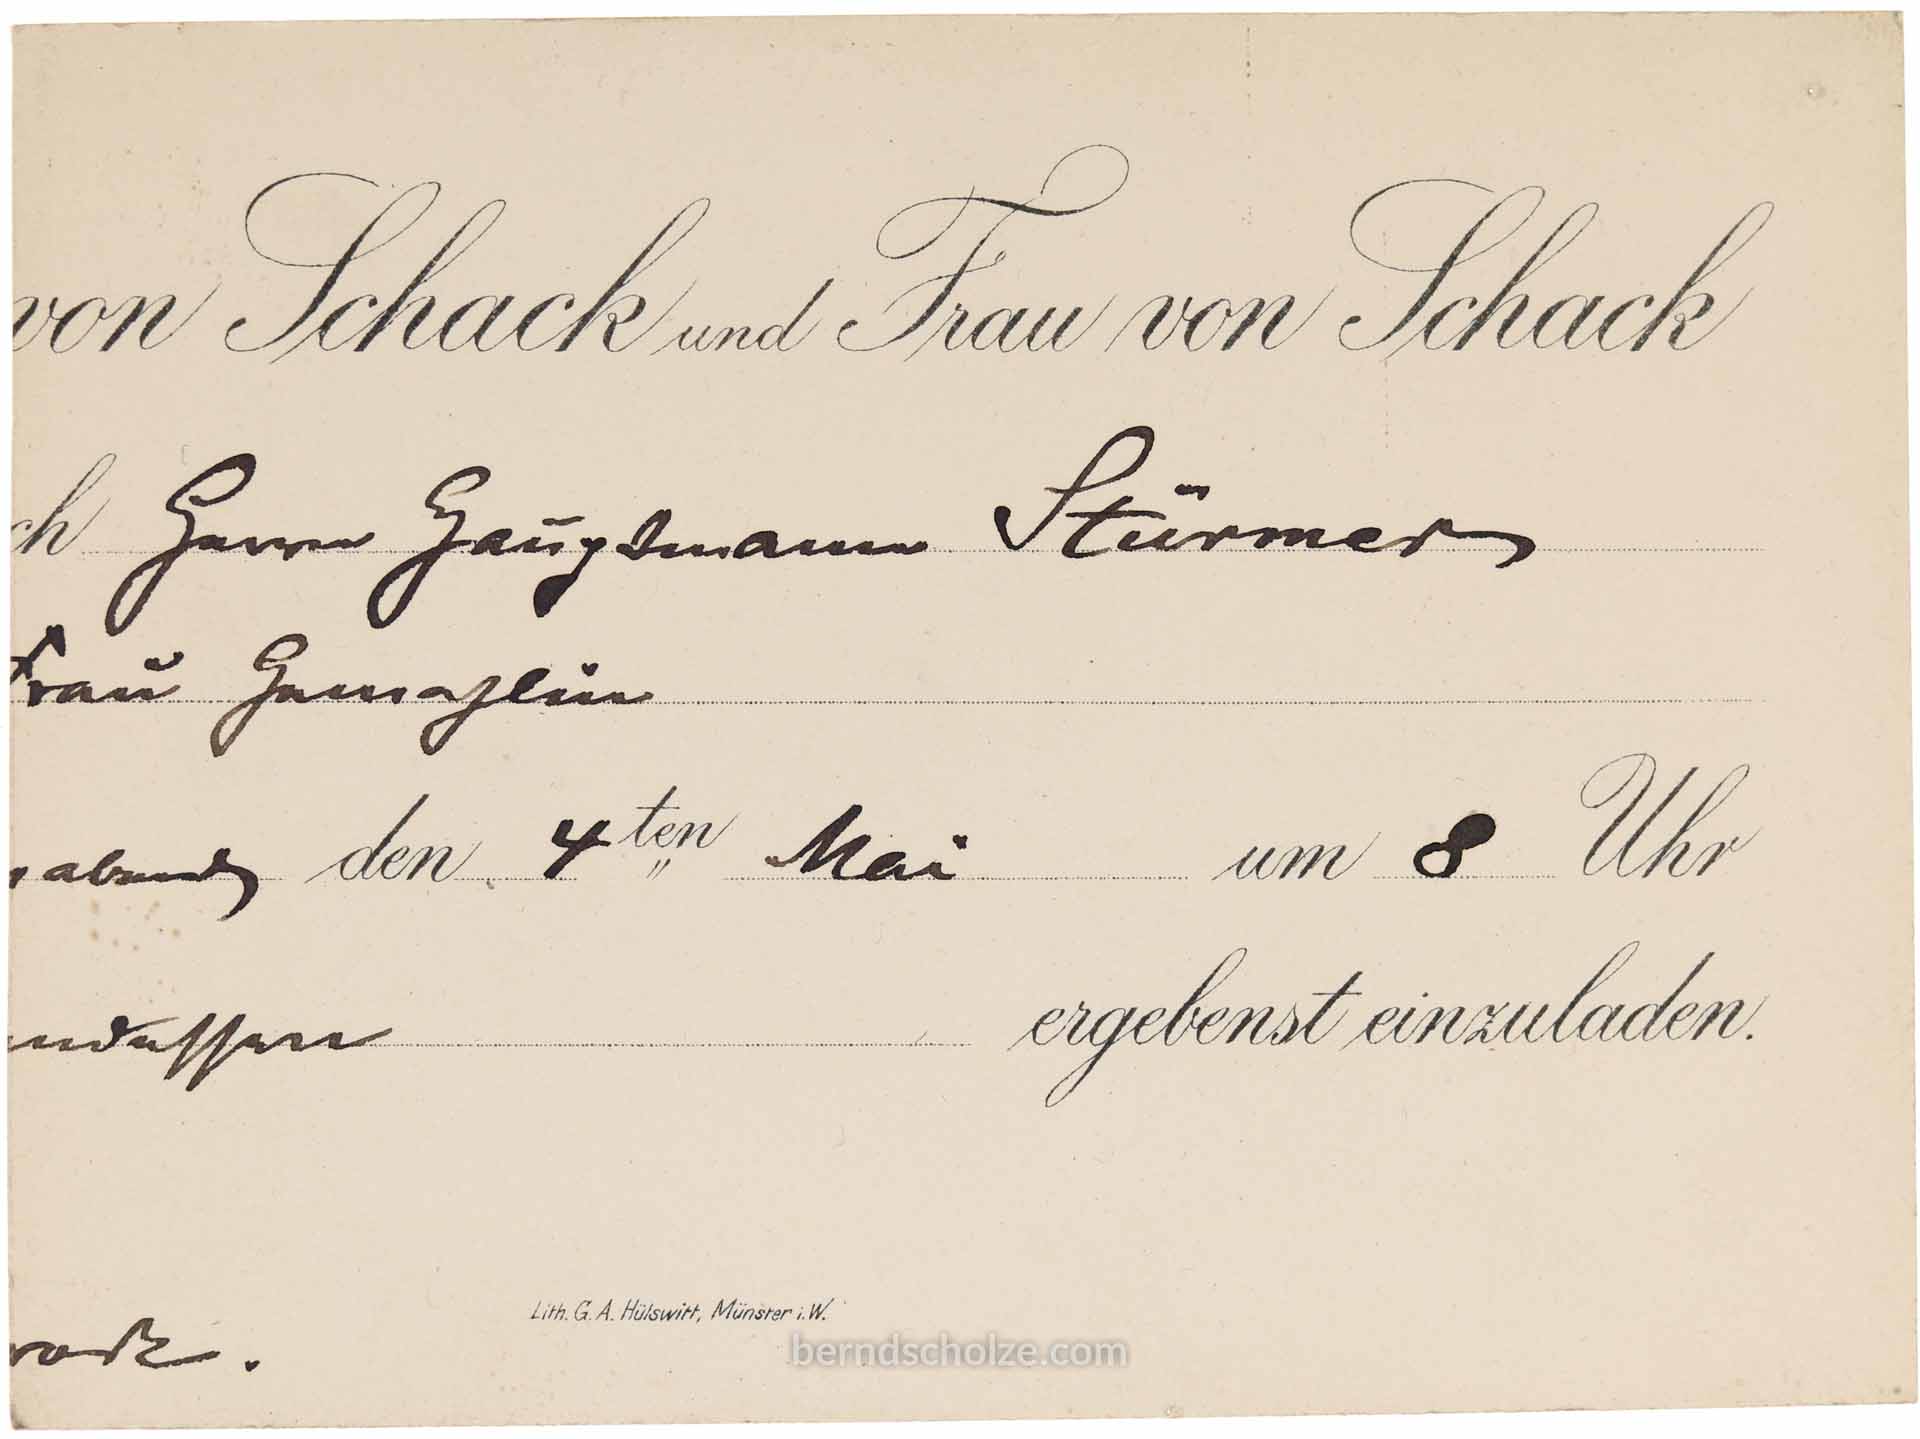 von Schack und Frau von Schack
ch Herrn Hauptmann Stürmer
Frau Gemahlin
abends den 4ten Mai um 8 Uhr
ndessen ergebenst einzuladen.
Lith. G. A. Hülswitt, Münster i. W.
berndscholze.com
rock.